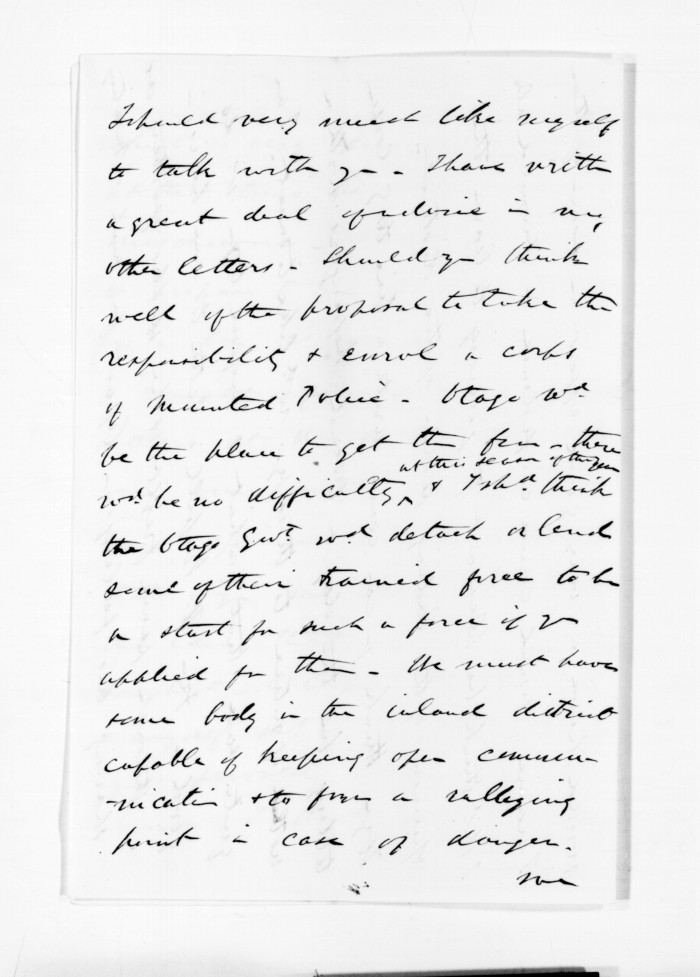 I should very much like myself
to talk with yr - I have written
a great deal of advice in my
other letters - Should yr think
well of the proposal to take the
responsibility & enrol a corps
of Mounted Police - Otago wd
be the place to get them from - there
at this season of the year
wd be no difficulty ^ & I shd think
the Otago Govt wd detach or lend
some of their trained force to be
a start for such a force if yr
applied for them - We must have
some body in the inland district
capable of keeping open commu-
-nication & to form a rallying
point in case of danger.
we